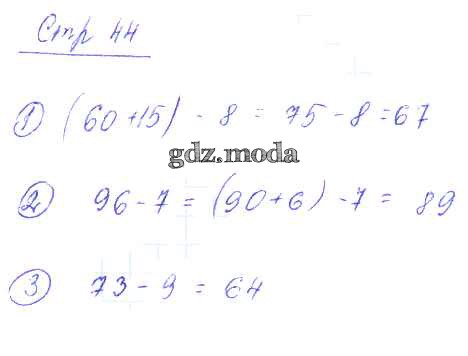 Стр 44
1) (60+15) - 8 = 75 - 8 = 67
gdz.moda
2) 96 - 7 = (90+6) - 7 = 89
3) 73 - 9 = 64